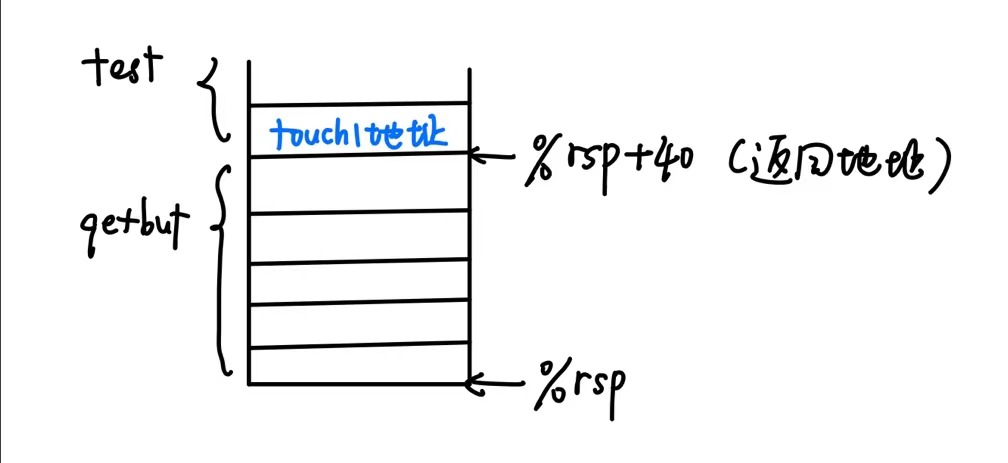 test
touch1地址
%rsp+40 (返回地址)
getbuf
%rsp